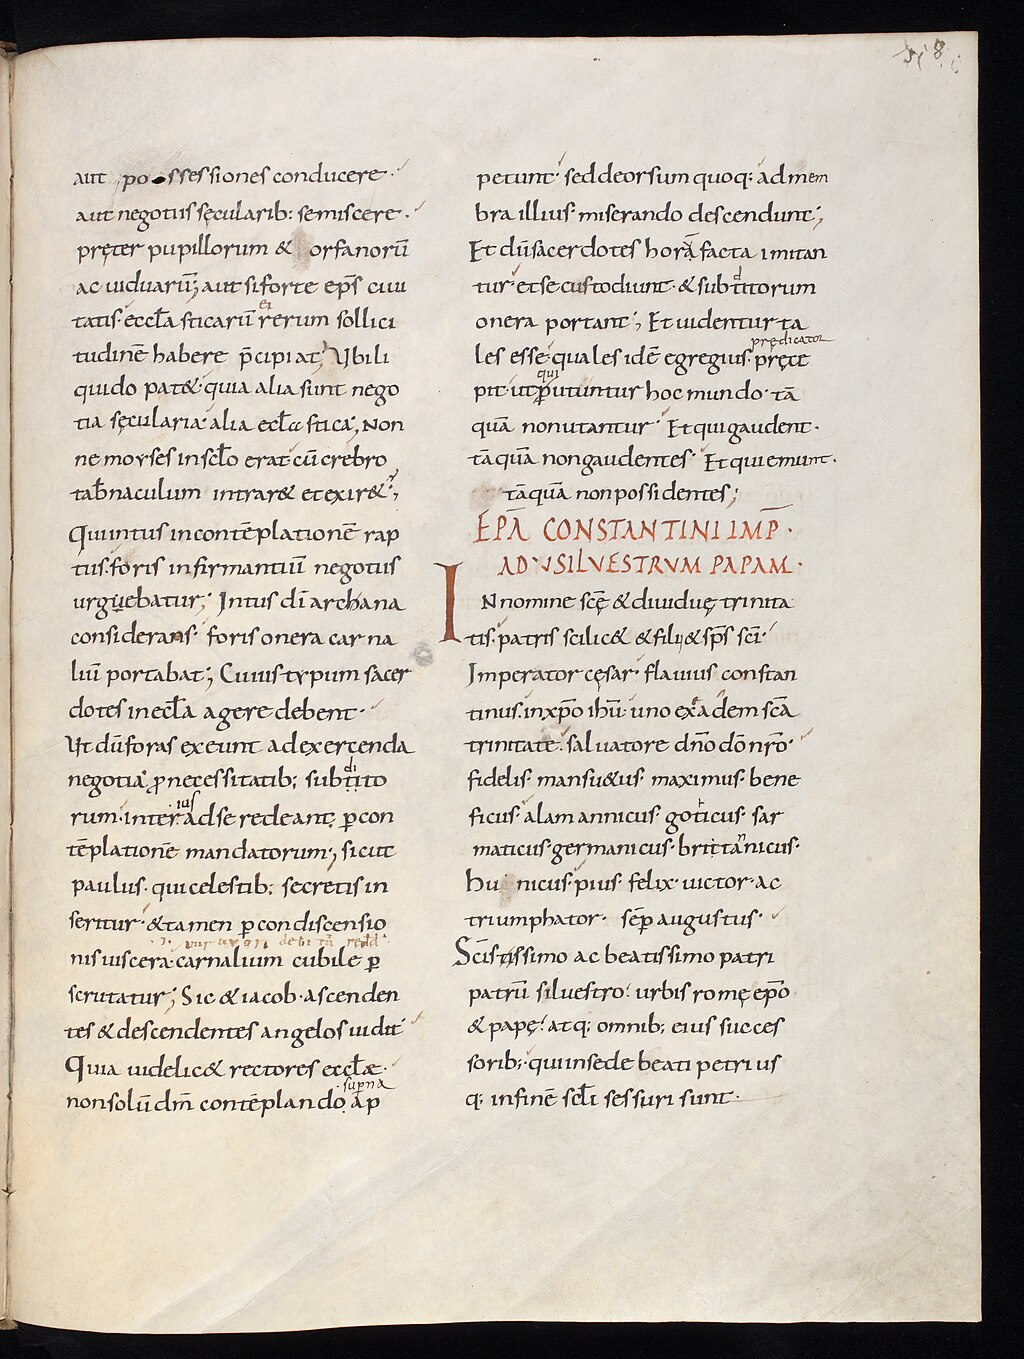 aut possessiones conducere·
aut negotiis sęcularib: se miscere·
pręter pupillorum & orfanorū
ac uiduarū; aut si forte ep̄s ciui
tatis· eccl̄a sticarū rerum sollici
ei
tudinē habere p̄cipiat; Vbi li
quido pat&· quia alia sunt nego
tia sęcularia· alia eccl̄a stica; Non
ne moyses in scl̄o erat· cū crebro
tab̄naculum intrar& et exir&;
Qui intus in contēplationē rap
tus· foris infirmantiū negotiis
urguebatur; Intus dī archana
considerans· foris onera carna
liū portabat; Cuius typum sacer
dotes in eccl̄a agere debent·
Ut dū foras exeunt ad exercenda
negotia· p̱ necessitatib; subtito
di
rum· inter ad se redeant· ꝑ con
ius
tēplationē mandatorum; sicut
paulus· qui celestib; secretis in
seritur· & tamen ꝑ condiscensio
.i. uir uxori debitū redd
nis uiscera· carnalium cubile ꝑ
scrutatur; Sic & iacob· ascenden
tes & descendentes angelos uidit·
Quia uidelic& rectores eccl̄æ·
non solū dm̄ contēplando· ap
supna
petunt· sed deorsum quoq; ad mem
bra illius· miserando descendunt;
Et dū sacerdotes horā facta imitan
tur· et se custodiunt· & subtitorum
d
onera portant; Et uidentur ta
les esse· quales idē egregius· pręce
prędicator
pit· ut p̱utuntur hoc mundo· tā
qui
quā non utantur· Et qui gaudent·
tāquā non gaudentes· Et qui emunt·
tāquā non possidentes;
EPLĀ CONSTANTINI IMP̄·
AD SILVESTRVM PAPAM·
IN nomine scę & diuiduę trinita
tis· patris scilic& & filii & sp̄s sc̄i·
Imperator cęsar· flauius constan
tinus· in xp̄o ihū· uno ex adem sc̄a
trinitate· saluatore dn̄o dō nr̄o·
fidelis· mansu&us· maximus· bene
ficus· alamannicus· goticus· sar
maticus· germanicus· brittannicus·
hunicus· pius· felix· uictor· ac
triumphator· sēp augustus·
Sc̄issimo ac beatissimo patri
patrū siluestro· urbis romę ep̄o
& papę· atq; omnib; eius succes
sorib; qui in sede beati petri us
q; in finē scl̄i sessuri sunt·